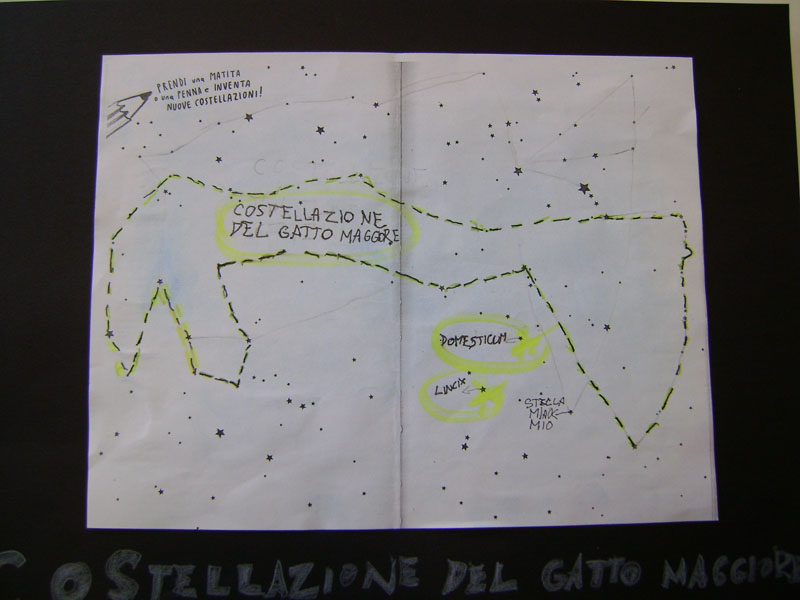 PRENDI una MATITA
o una PENNA e INVENTA
NUOVE COSTELLAZIONI!
COSTELLAZIONE
DEL GATTO MAGGIORE
DOMESTICUM
LINCIX
STELLA
MIAOX
MIO
COSTELLAZIONE DEL GATTO MAGGIORE